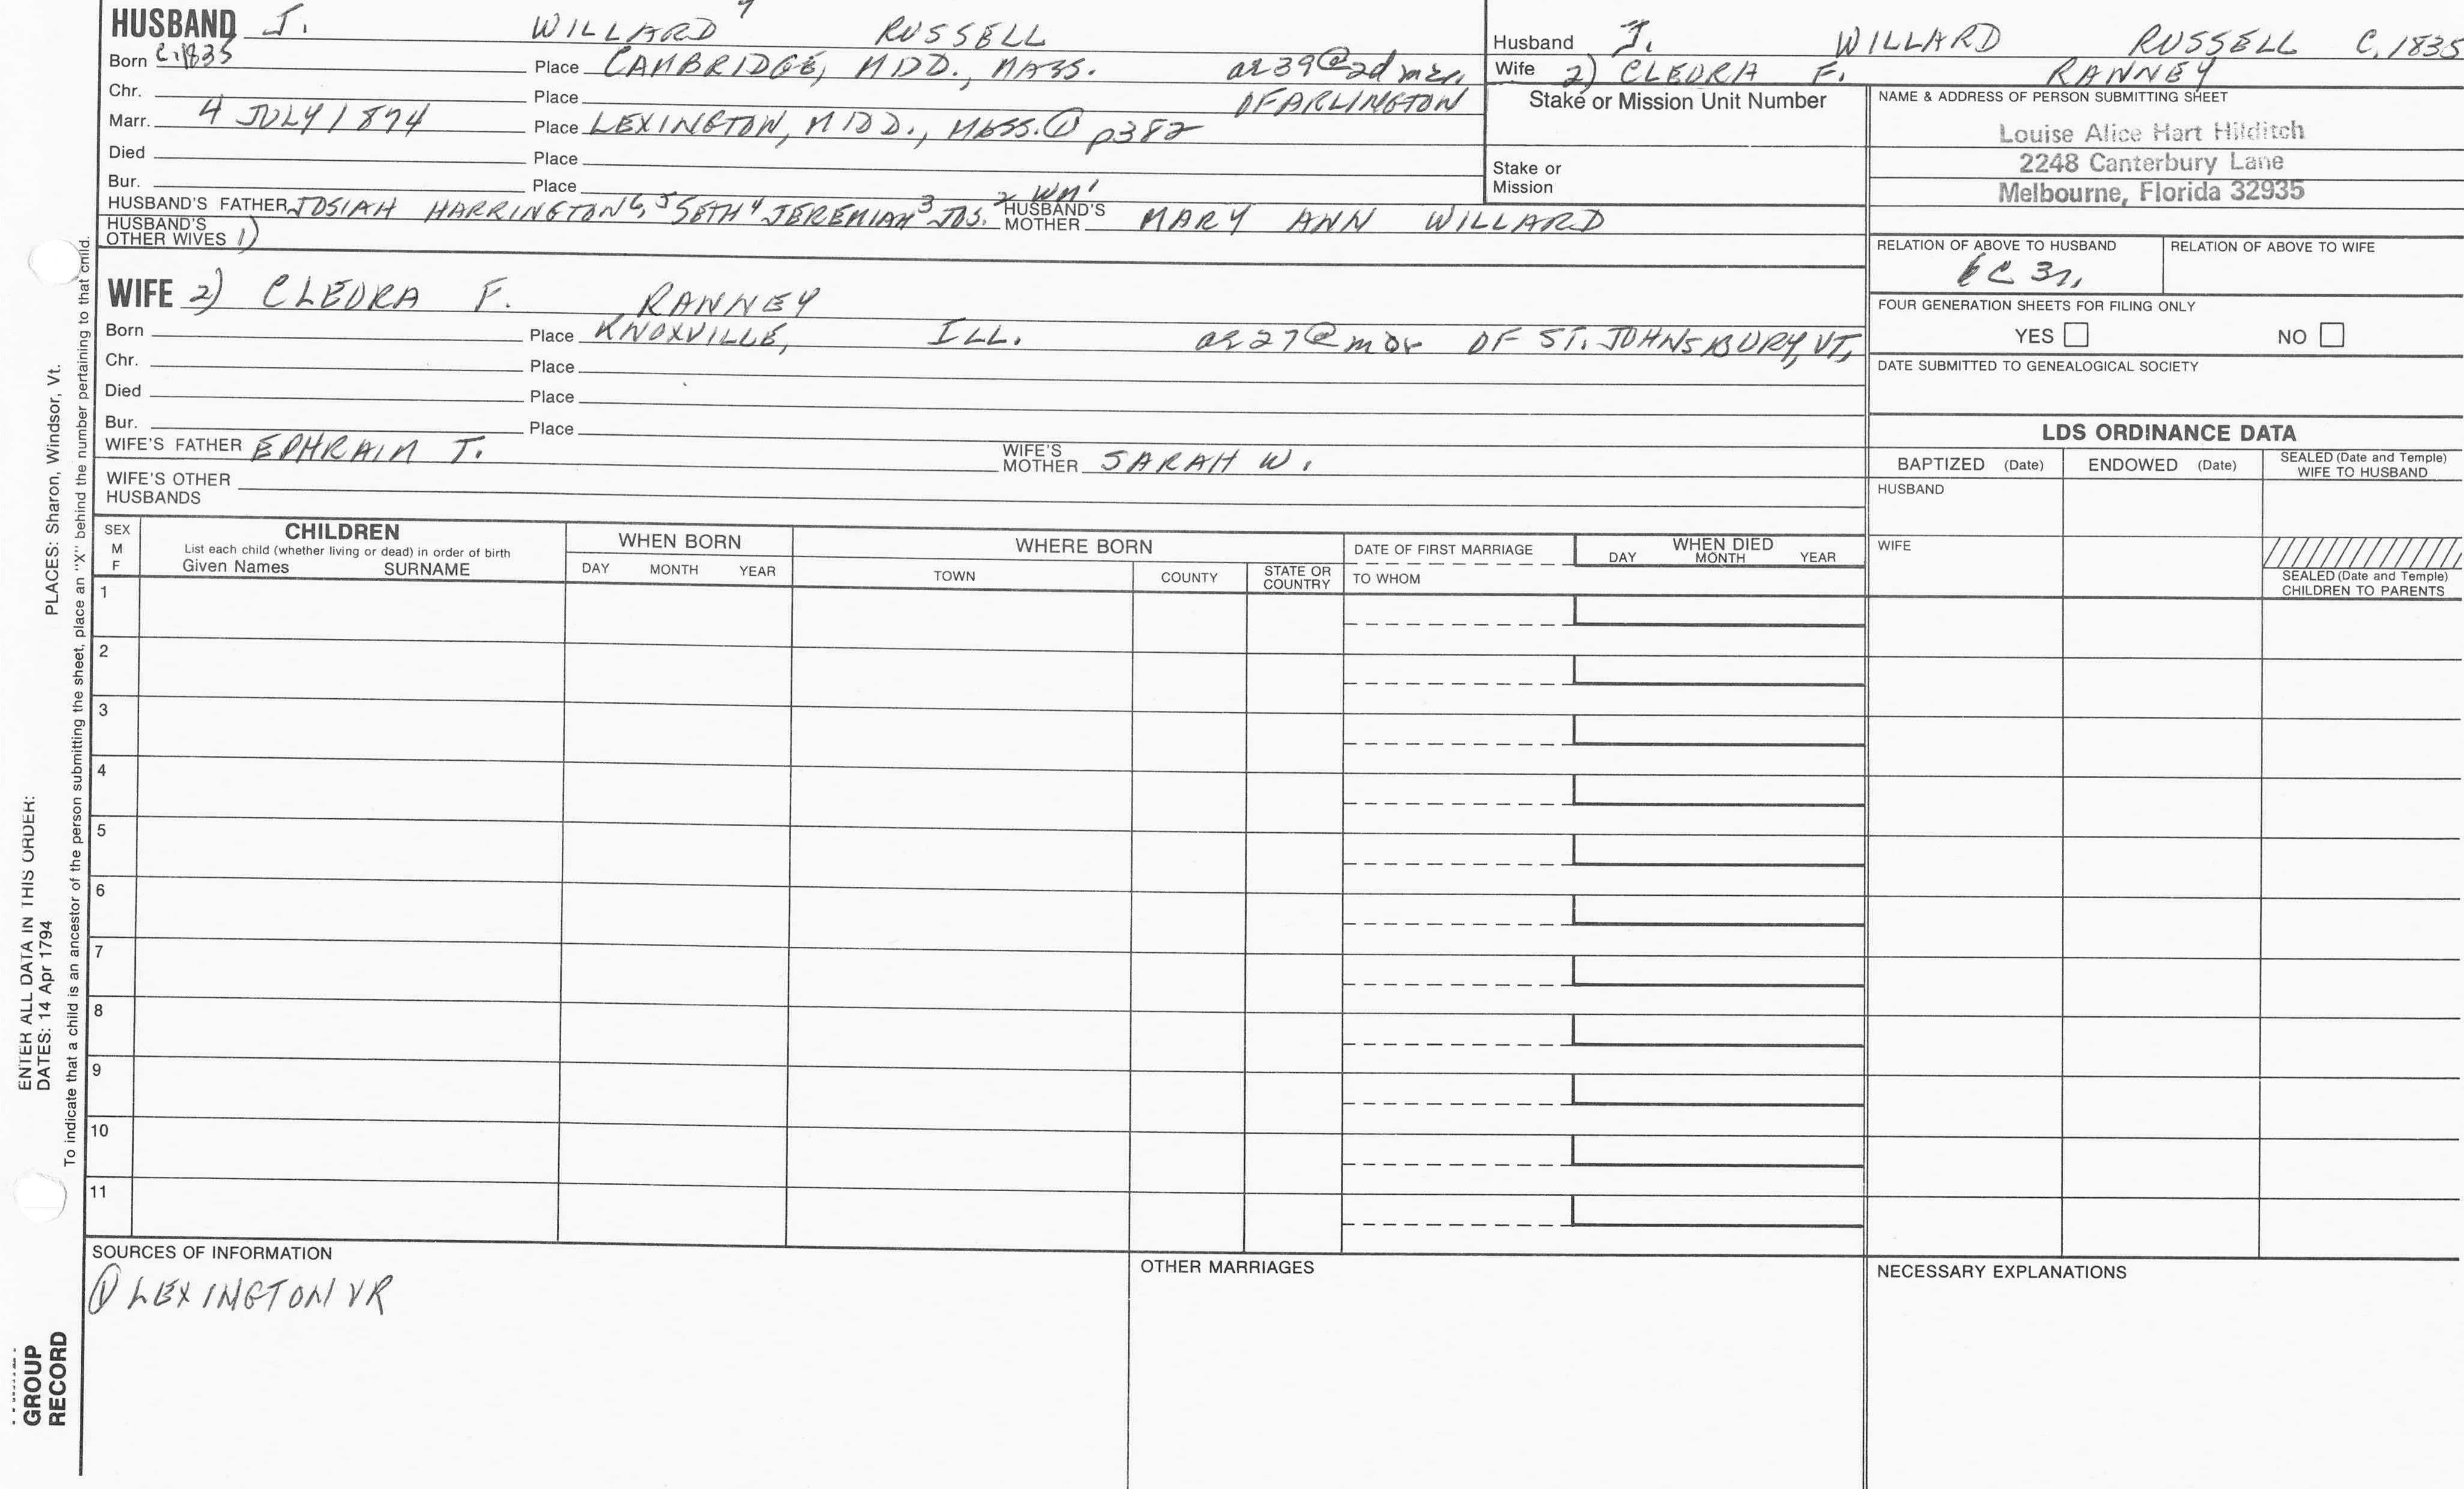 HUSBAND J. WILLARD 7 RUSSELL
Born C.1835 Place CAMBRIDGE, MIDD., MASS. ae 39 @ 2d mar. OF ARLINGTON
Chr. Place
Marr. 4 JULY 1874 Place LEXINGTON, MIDD., MASS. ① p382
Died Place
Bur. Place
HUSBAND'S FATHER JOSIAH HARRINGTON 6, 5 SETH 4 JEREMIAH 3 JOS. 2 WM 1 HUSBAND'S MOTHER MARY ANN WILLARD
HUSBAND'S OTHER WIVES 1)
WIFE 2) CLEORA F. RANNEY
Born Place KNOXVILLE, ILL. ae 27 @ mar OF ST. JOHNSBURY, VT.
Chr. Place
Died Place
Bur. Place
WIFE'S FATHER EPHRAIM T. WIFE'S MOTHER SARAH W.
WIFE'S OTHER HUSBANDS
Husband J. WILLARD RUSSELL C. 1835
Wife 2) CLEORA F. RANNEY
Stake or Mission Unit Number
Stake or Mission
NAME & ADDRESS OF PERSON SUBMITTING SHEET
Louise Alice Hart Hilditch
2248 Canterbury Lane
Melbourne, Florida 32935
RELATION OF ABOVE TO HUSBAND RELATION OF ABOVE TO WIFE
6C 3r.
FOUR GENERATION SHEETS FOR FILING ONLY
YES NO
DATE SUBMITTED TO GENEALOGICAL SOCIETY
LDS ORDINANCE DATA
BAPTIZED (Date) ENDOWED (Date) SEALED (Date and Temple) WIFE TO HUSBAND
HUSBAND
WIFE
SEALED (Date and Temple) CHILDREN TO PARENTS
SEX M F
CHILDREN
List each child (whether living or dead) in order of birth
Given Names SURNAME
WHEN BORN
DAY MONTH YEAR
WHERE BORN
TOWN COUNTY STATE OR COUNTRY
DATE OF FIRST MARRIAGE
TO WHOM
WHEN DIED
DAY MONTH YEAR
1
2
3
4
5
6
7
8
9
10
11
SOURCES OF INFORMATION
① LEXINGTON VR
OTHER MARRIAGES
NECESSARY EXPLANATIONS
ENTER ALL DATA IN THIS ORDER:
DATES: 14 Apr 1794 PLACES: Sharon, Windsor, Vt.
To indicate that a child is an ancestor of the person submitting the sheet, place an "X" behind the number pertaining to that child.
GROUP
RECORD